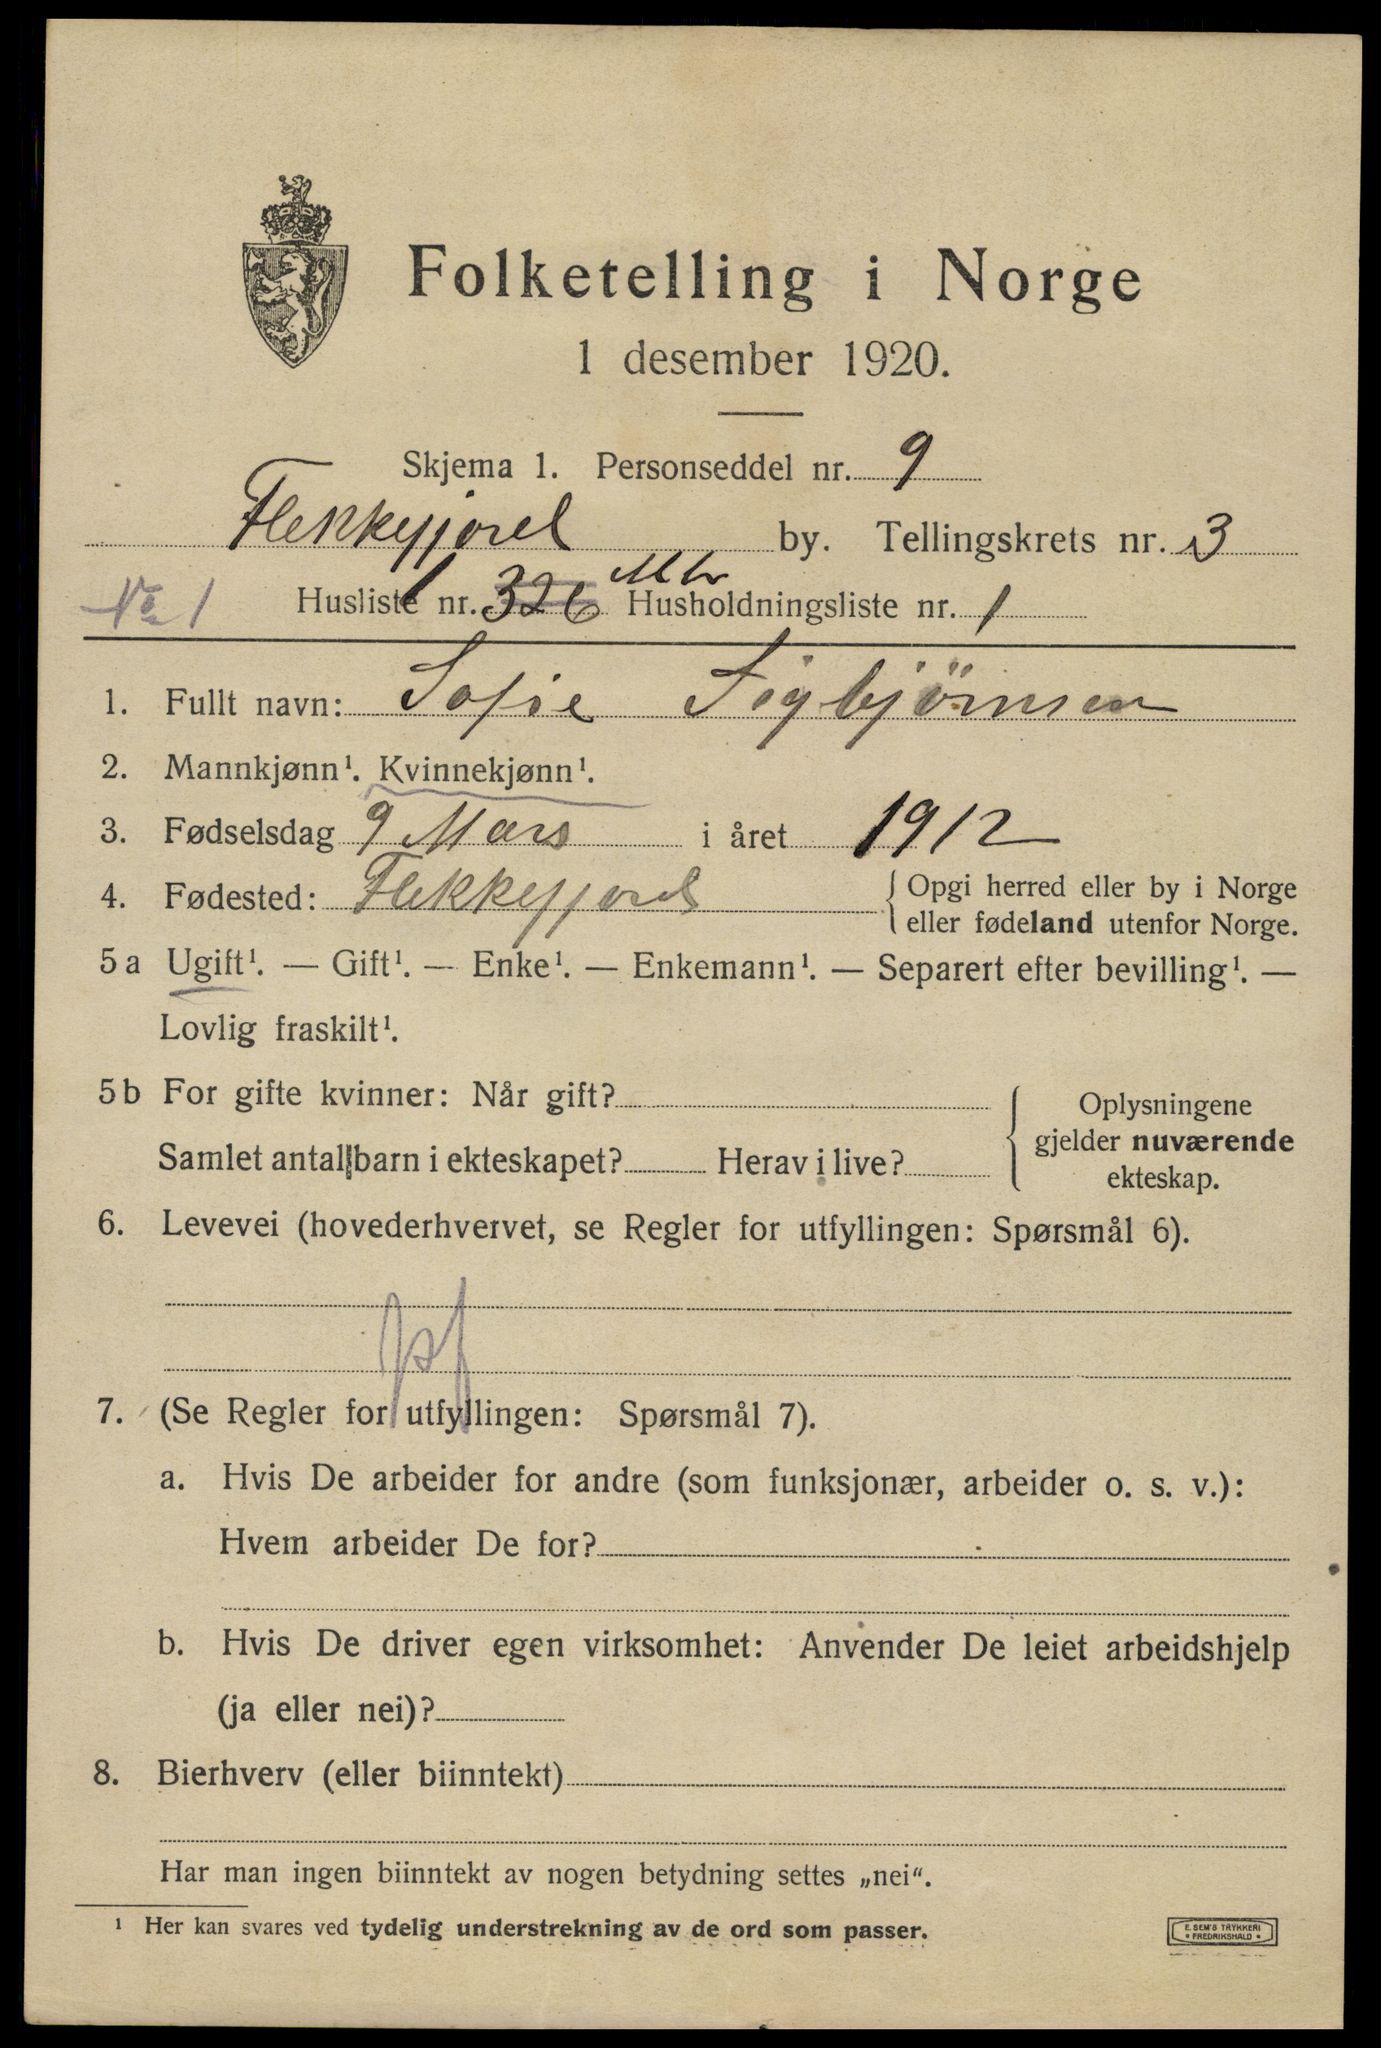 Folketelling i Norge
1 desember 1920.
Skjema 1. Personseddel nr. 9
Flekkefjord by. Tellingskrets nr. 3
No 1 Husliste nr. 326 1 Husholdningsliste nr. 1
1. Fullt navn: Sofie Sigbjörnsen
2. Mannkjønn¹. Kvinnekjønn¹.
3. Fødselsdag 9 Mars i året 1912
4. Fødested: Flekkefjord { Opgi herred eller by i Norge
eller fødeland utenfor Norge.
5 a Ugift¹. — Gift¹. — Enke¹. — Enkemann¹. — Separert efter bevilling¹. —
Lovlig fraskilt¹.
5 b For gifte kvinner: Når gift?
Samlet antal barn i ekteskapet? Herav i live?
Oplysningene
gjelder nuværende
ekteskap.
6. Levevei (hovederhvervet, se Regler for utfyllingen: Spørsmål 6).
7. (Se Regler for utfyllingen: Spørsmål 7).
a. Hvis De arbeider for andre (som funksjonær, arbeider o. s. v.):
Hvem arbeider De for?
b. Hvis De driver egen virksomhet: Anvender De leiet arbeidshjelp
(ja eller nei)?
8. Bierhverv (eller biinntekt)
Har man ingen biinntekt av nogen betydning settes „nei“.
¹ Her kan svares ved tydelig understrekning av de ord som passer.
E. SEM'S TRYKKERI
* FREDRIKSHALD *